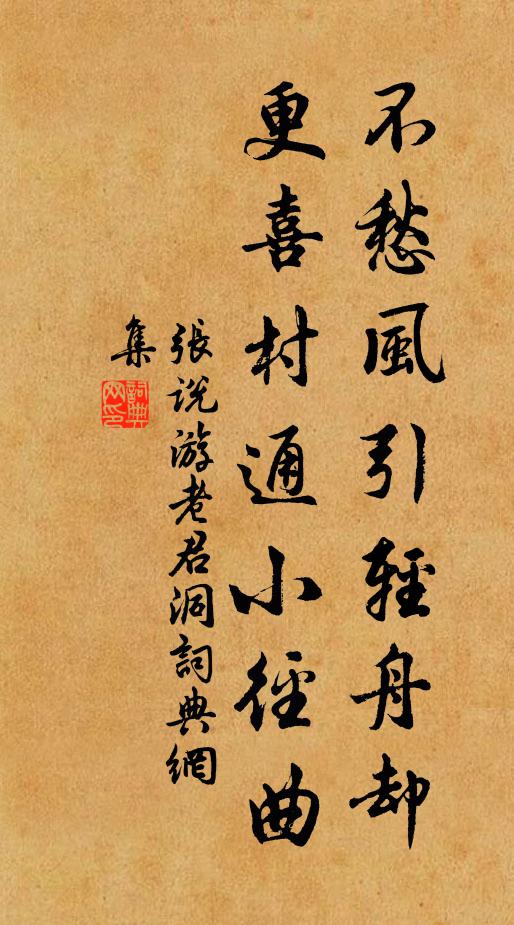 不愁風引輕舟却
更喜村通小徑曲
張說游老君洞詞典網
集
詞典
网印